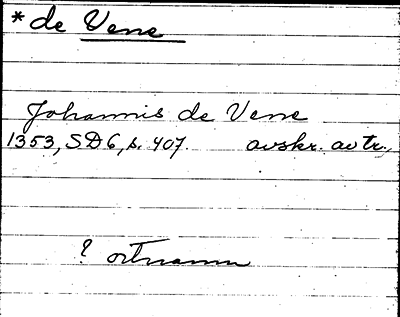 * de Vene
Johannis de Vene
1353, SD 6, s. 407. avskr. av tr.,
? ortnamn